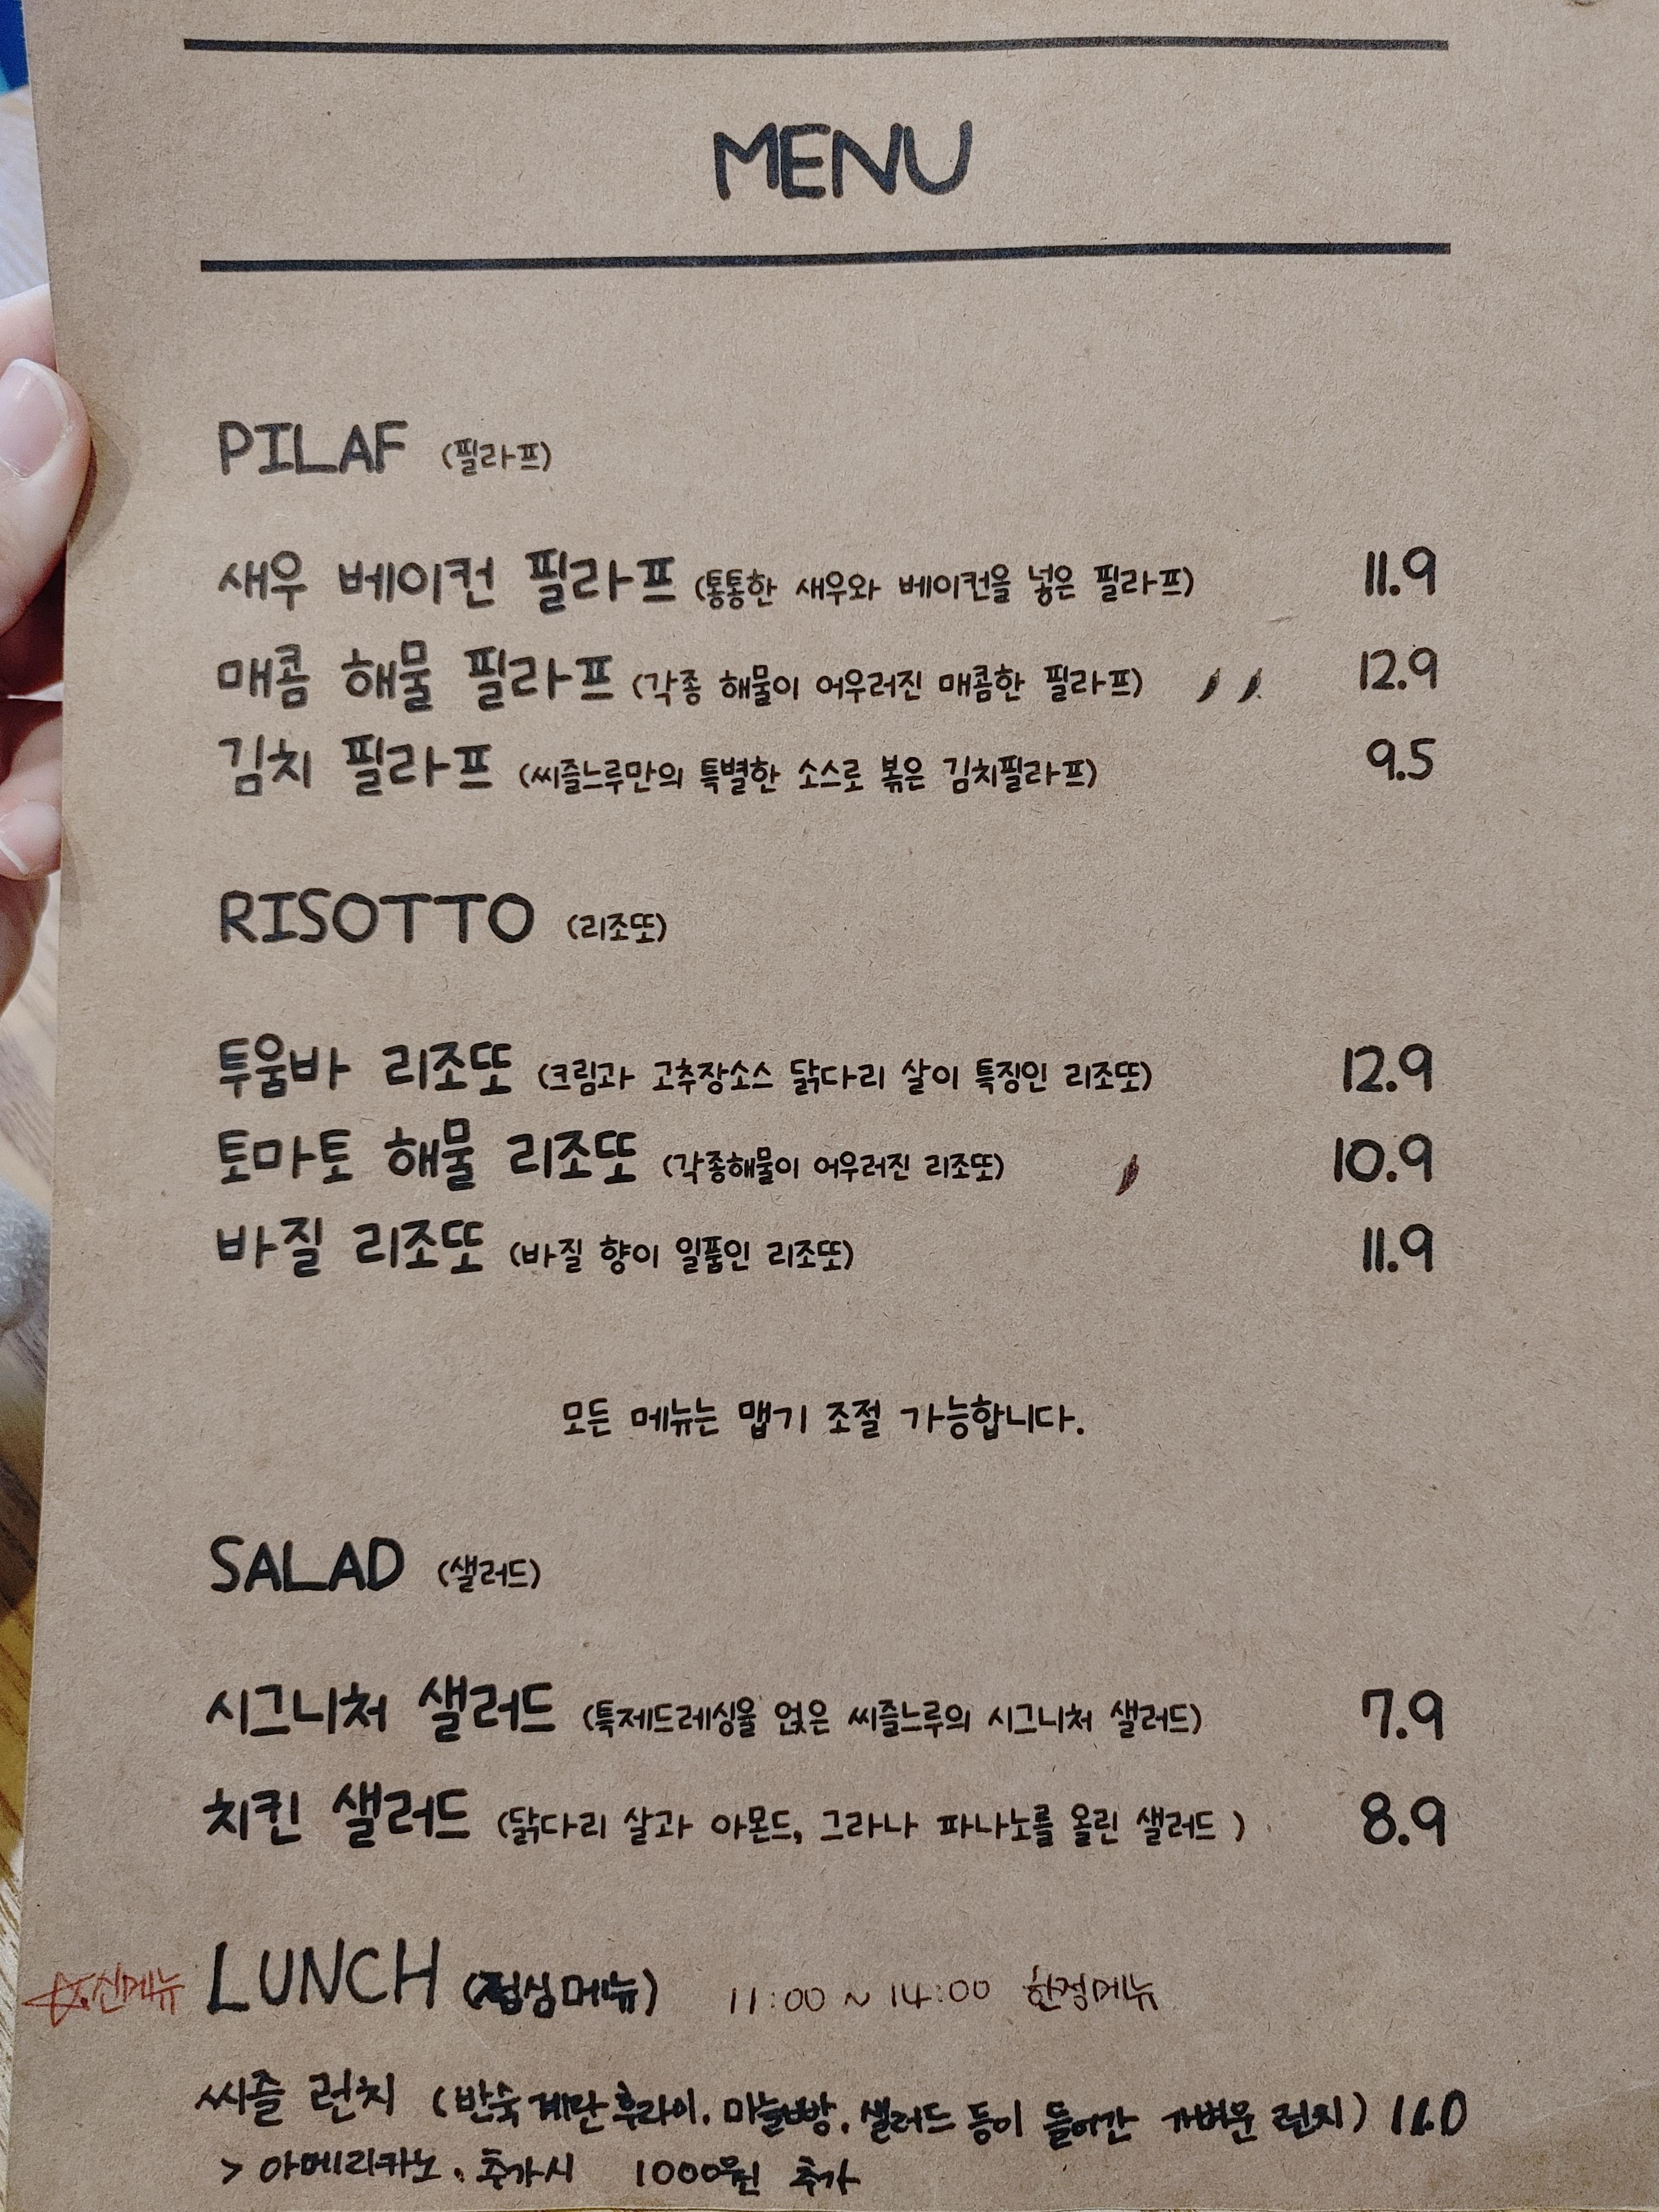 MENU
PILAF (필라프)
새우 베이컨 필라프 (통통한 새우와 베이컨을 넣은 필라프) 11.9
매콤 해물 필라프 (각종 해물이 어우러진 매콤한 필라프) 12.9
김치 필라프 (씨즐느루만의 특별한 소스로 볶은 김치필라프) 9.5
RISOTTO (리조또)
투움바 리조또 (크림과 고추장소스 닭다리 살이 특징인 리조또) 12.9
토마토 해물 리조또 (각종해물이 어우러진 리조또) 10.9
바질 리조또 (바질 향이 일품인 리조또) 11.9
모든 메뉴는 맵기 조절 가능합니다.
SALAD (샐러드)
시그니처 샐러드 (특제드레싱을 얹은 씨즐느루의 시그니처 샐러드) 7.9
치킨 샐러드 (닭다리 살과 아몬드, 그라나 파나노를 올린 샐러드 ) 8.9
☆신메뉴 LUNCH (점심메뉴) 11:00 ~ 14:00 한정메뉴
씨즐 런치 (반숙 계란 후라이, 마늘빵, 샐러드 등이 들어간 가벼운 런치) 11.0
> 아메리카노, 추가시 1000원 추가